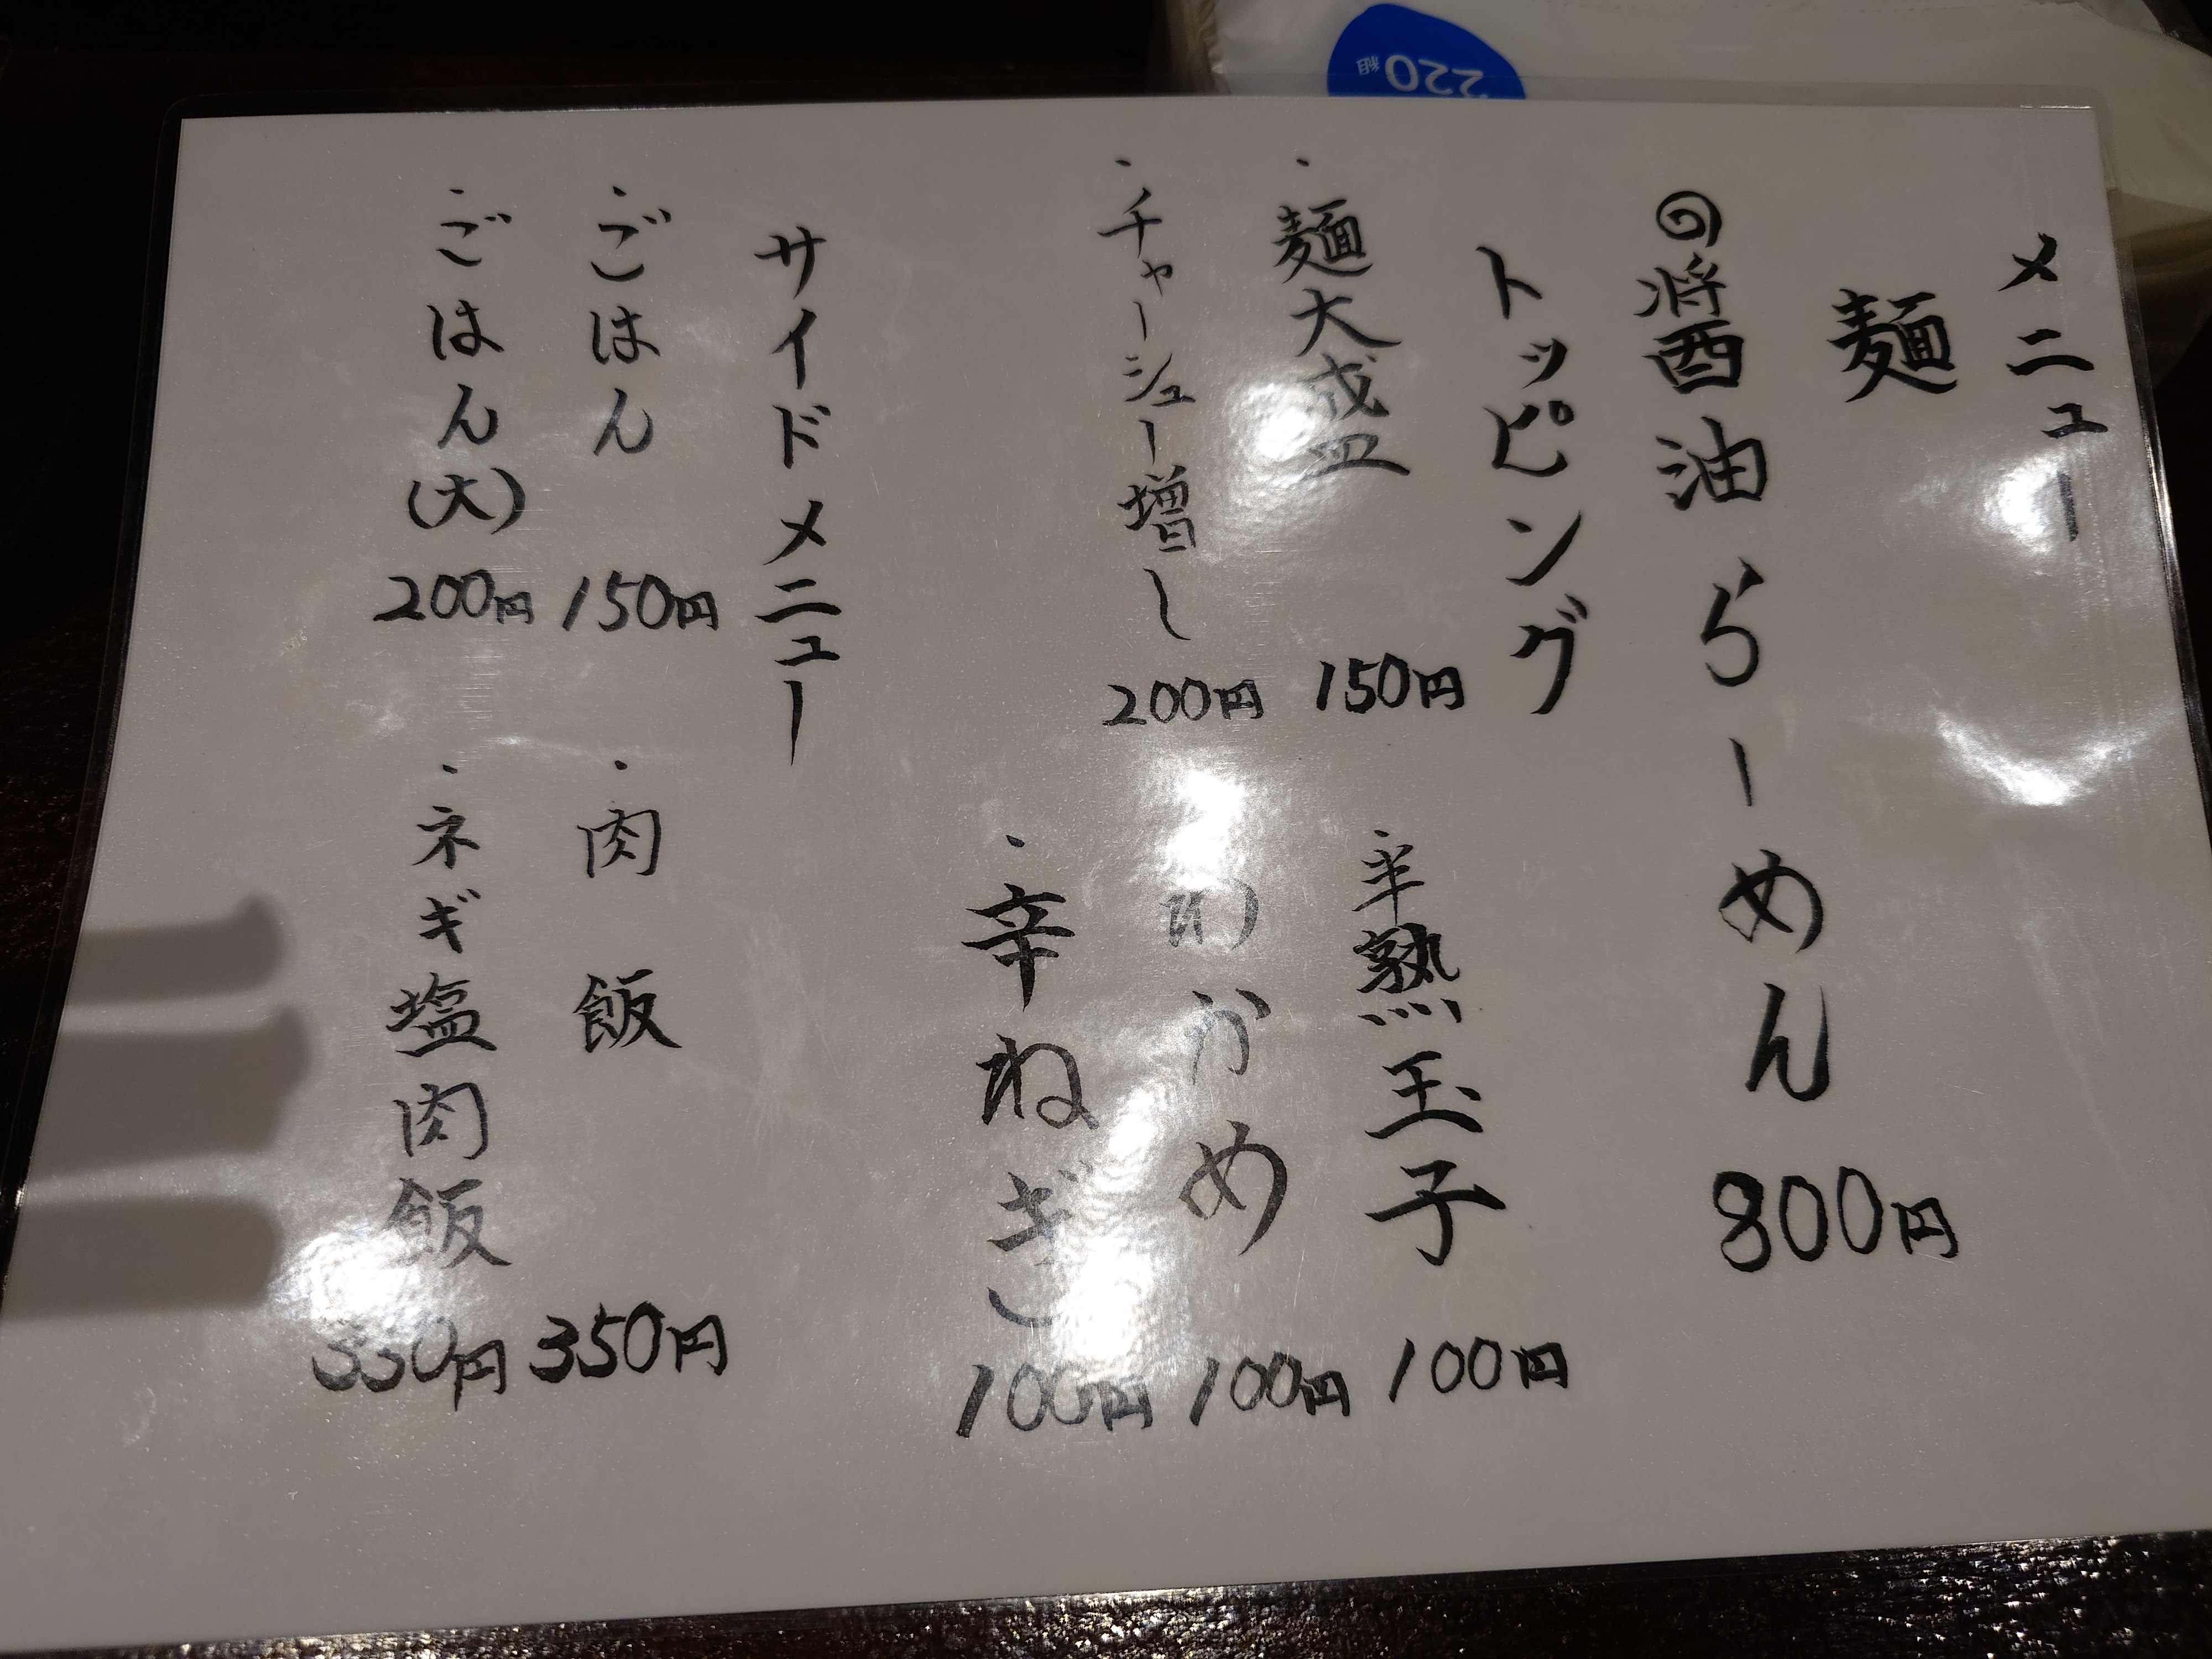 メニュー
麺
醤油らーめん 800円
トッピング
・麺大盛 150円
・チャーシュー増し 200円
・半熟玉子 100円
わかめ 100円
・辛ねぎ 100円
サイドメニュー
・ごはん 150円
・ごはん(大) 200円
・肉飯 350円
・ネギ塩肉飯
220組